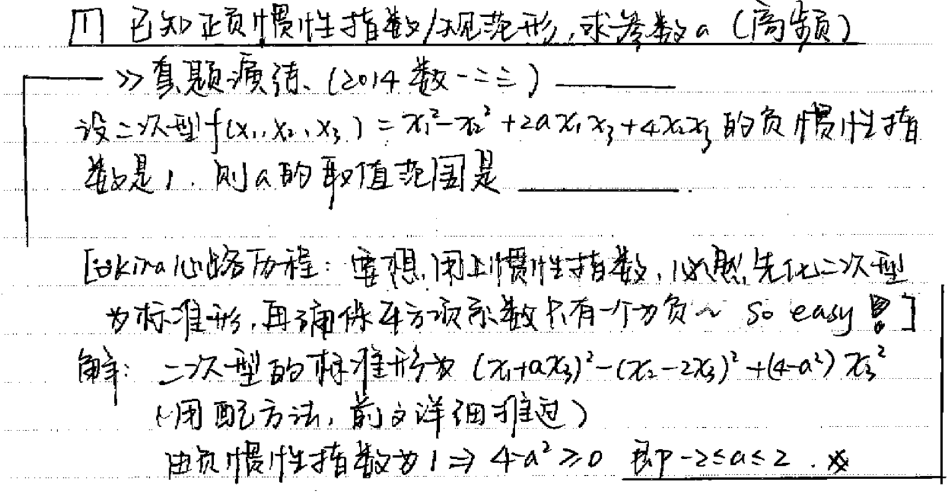 ① 已知正负惯性指数/规范形,求参数a (高频)
>> 真题演练、(2014 数一二三)
设二次型f(x₁,x₂,x₃) = x₁²-x₂²+2ax₁x₃+4x₂x₃的负惯性指
数是1. 则a的取值范围是 ________.
[kira心路历程: 要想用上惯性指数,必然先化二次型
为标准形,再确保平方项系数只有一个为负~ So easy!]
解: 二次型的标准形为 (x₁+ax₃)²-(x₂-2x₃)²+(4-a²)x₃²
(用配方法,前文详细推过)
由负惯性指数为1⇒ 4-a²≥0 即-2≤a≤2.※